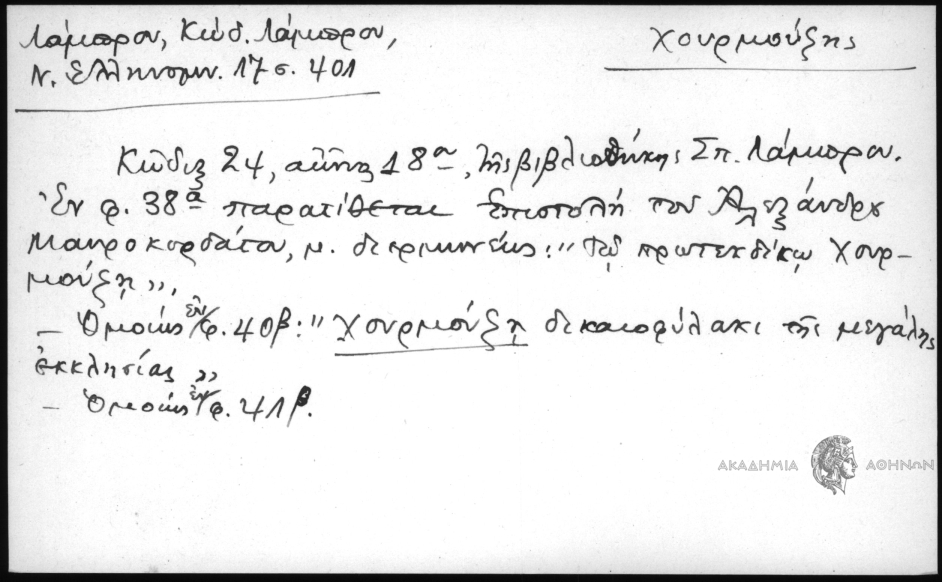 Λάμπρου, Κώδ. Λάμπρου,
Ν. Ελληνομν. 17 σ. 401
Χουρμούζης
Κῶδιξ 24, αἰῶνος 18ου, τῆς βιβλιοθήκης Σπ. Λάμπρου.
Ἐν φ. 38α παρατίθεται Ἐπιστολή του Ἀλεξάνδρου
Μαυροκορδάτου, μ. διερμηνέως: "Τῷ πρωτεκδίκῳ Χουρ-
μούζῃ",
- Ὁμοίως ἐν φ. 40β: "Χουρμούζῃ δικαιοφύλακι τῆς μεγάλης
ἐκκλησίας"
- Ὁμοίως ἐν φ. 41β.
ΑΚΑΔΗΜΙΑ ΑΘΗΝΩΝ